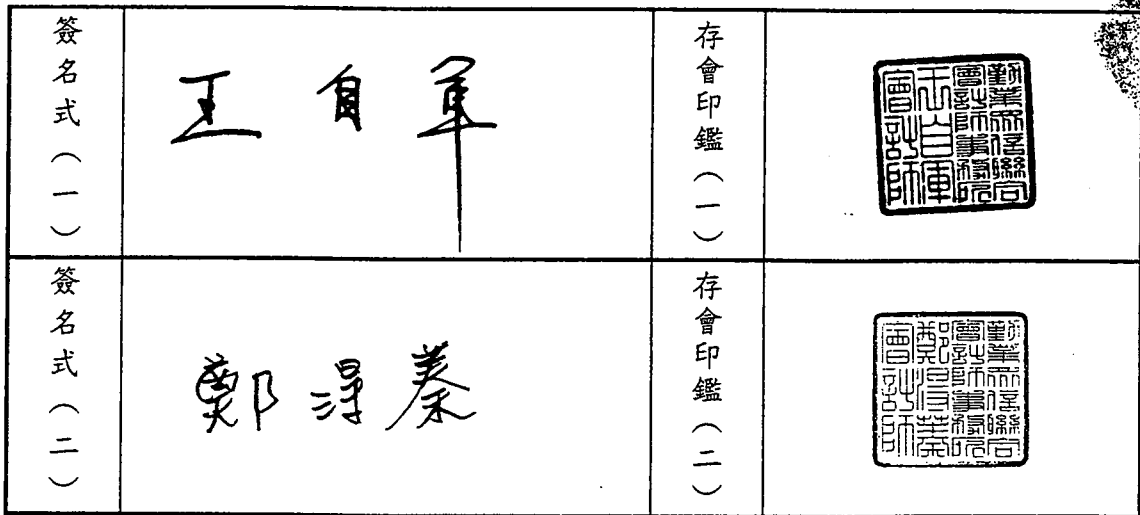 簽名式（一）
王自軍
存會印鑑（一）
勤業眾信聯合
會計師事務所
王自軍
會計師
簽名式（二）
鄭得蓁
存會印鑑（二）
勤業眾信聯合
會計師事務所
鄭得蓁
會計師